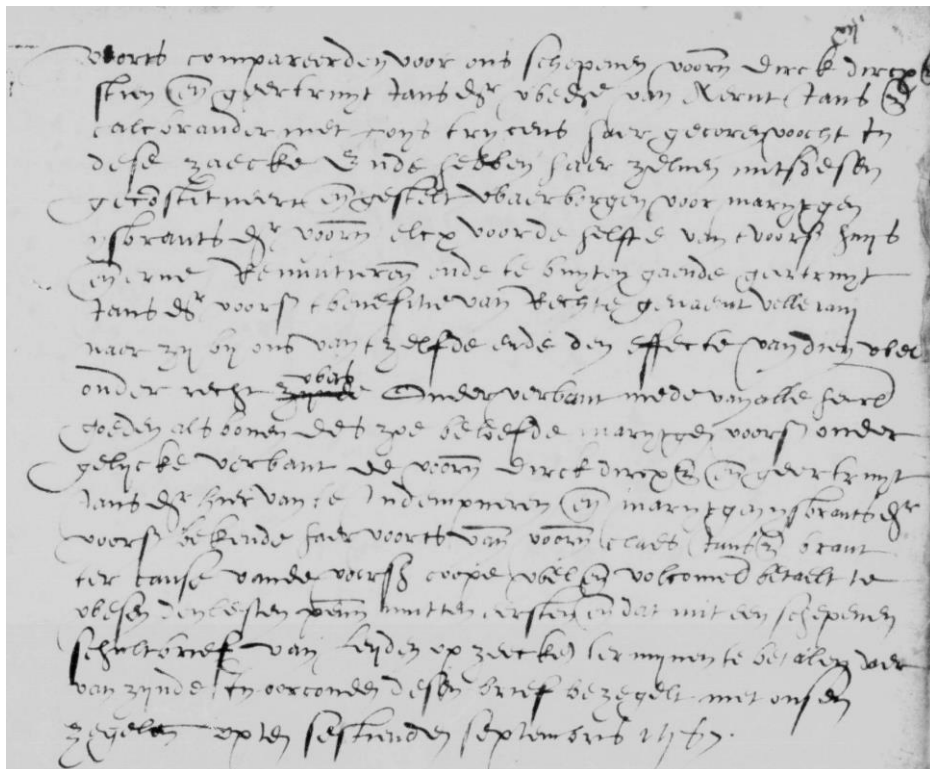 voorts compareerden voor ons schepenen voorn dirck dircx
stien en geertruyt Jans dr wede van Aernt Jans
calcbrander met haer gecoren voocht In
dese zaecke Ende hebben haer zelven mits desen
geconstitueert en gestelt waerborgen voor marytgen
ysbrants dr voorn elcx voorde helfte van tvoors huys
en erve Renuntieren ende te buyten gaende geertruyt
Jans dr voors tbenefitie van Rechte genaemt velleiani
naer zy by ons van tzelfde ende den effecte van dien wel
onder recht was Onder verbant mede van alle haer
goeden als boven des zoe beloefde marytgen voors onder
gelycke verbant de voorn dirck dircx en geertruyt
Jans dr hier van te Indempneren en marytgen ysbrants dr
voors bekende haer voorts van voorn claes brant
ter cause vande voors coope wel en volcomen betaelt te
wesen den lesten penn mitten eersten en dat mit een schepenen
schultbrief van leyden op zeeckere termynen te betalen daer
van zynde In oorconden desen brief bezegelt met onsen
zegelen opten sestienden septembris